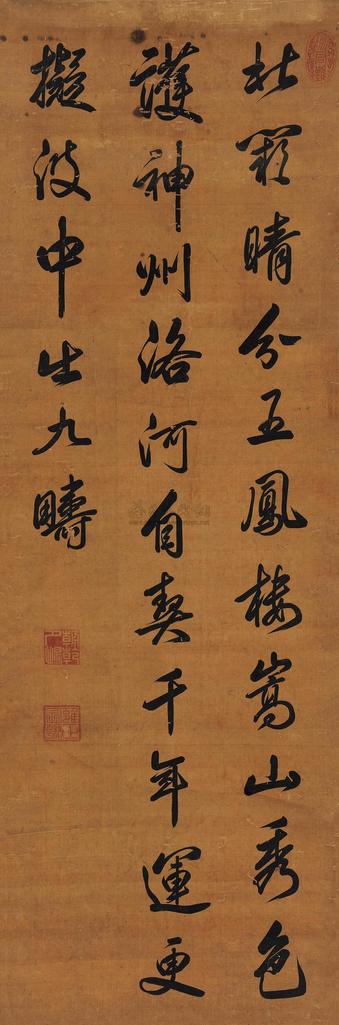 北闕晴分五鳳樓嵩山秀色
護神州洛河自契千年運更
擬波中出九疇